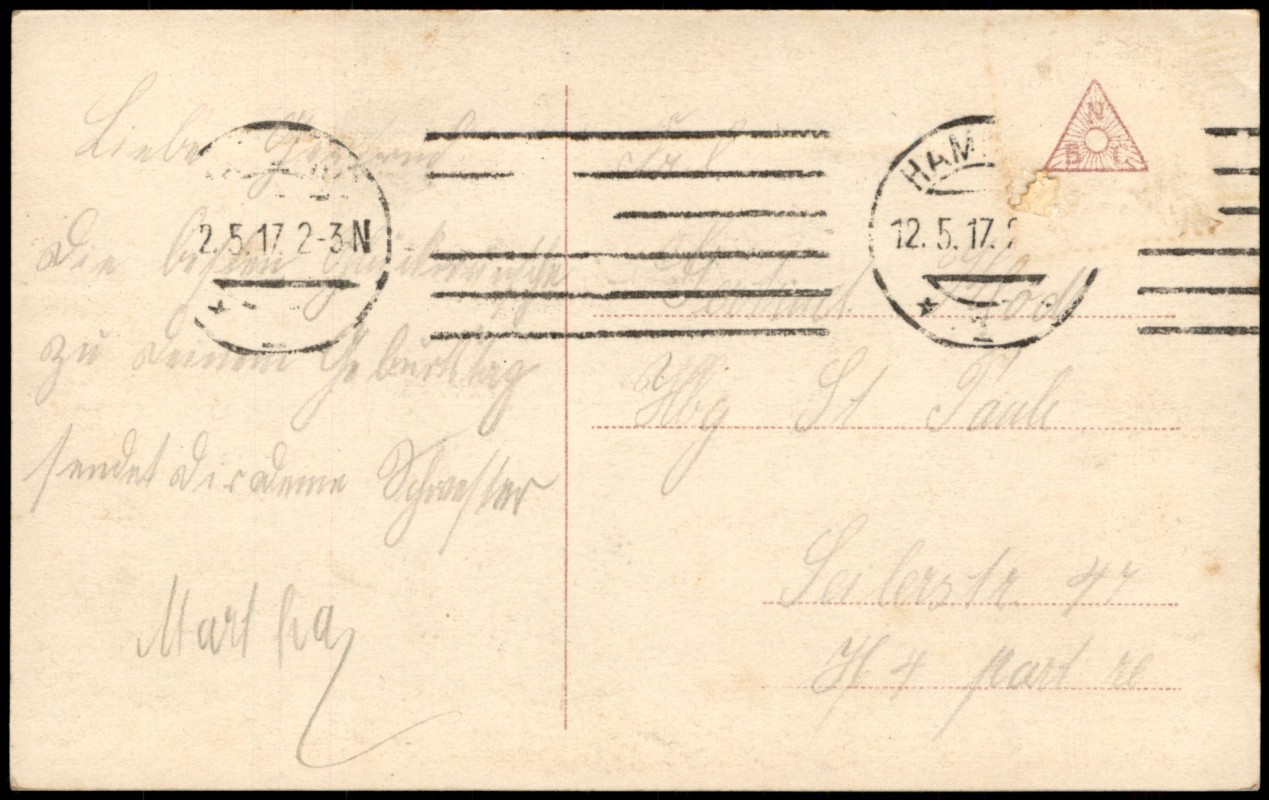 Liebe Gertrud
die besten Glückwünsche
zu deinem Geburtstag
sendet dir deine Schwester
Martha
2.5.17. 2-3N
HAM
12.5.17.
1
N
B C
Frl
Gertrud
Hbg St Pauli
Seilerstr 47
H 4 part re